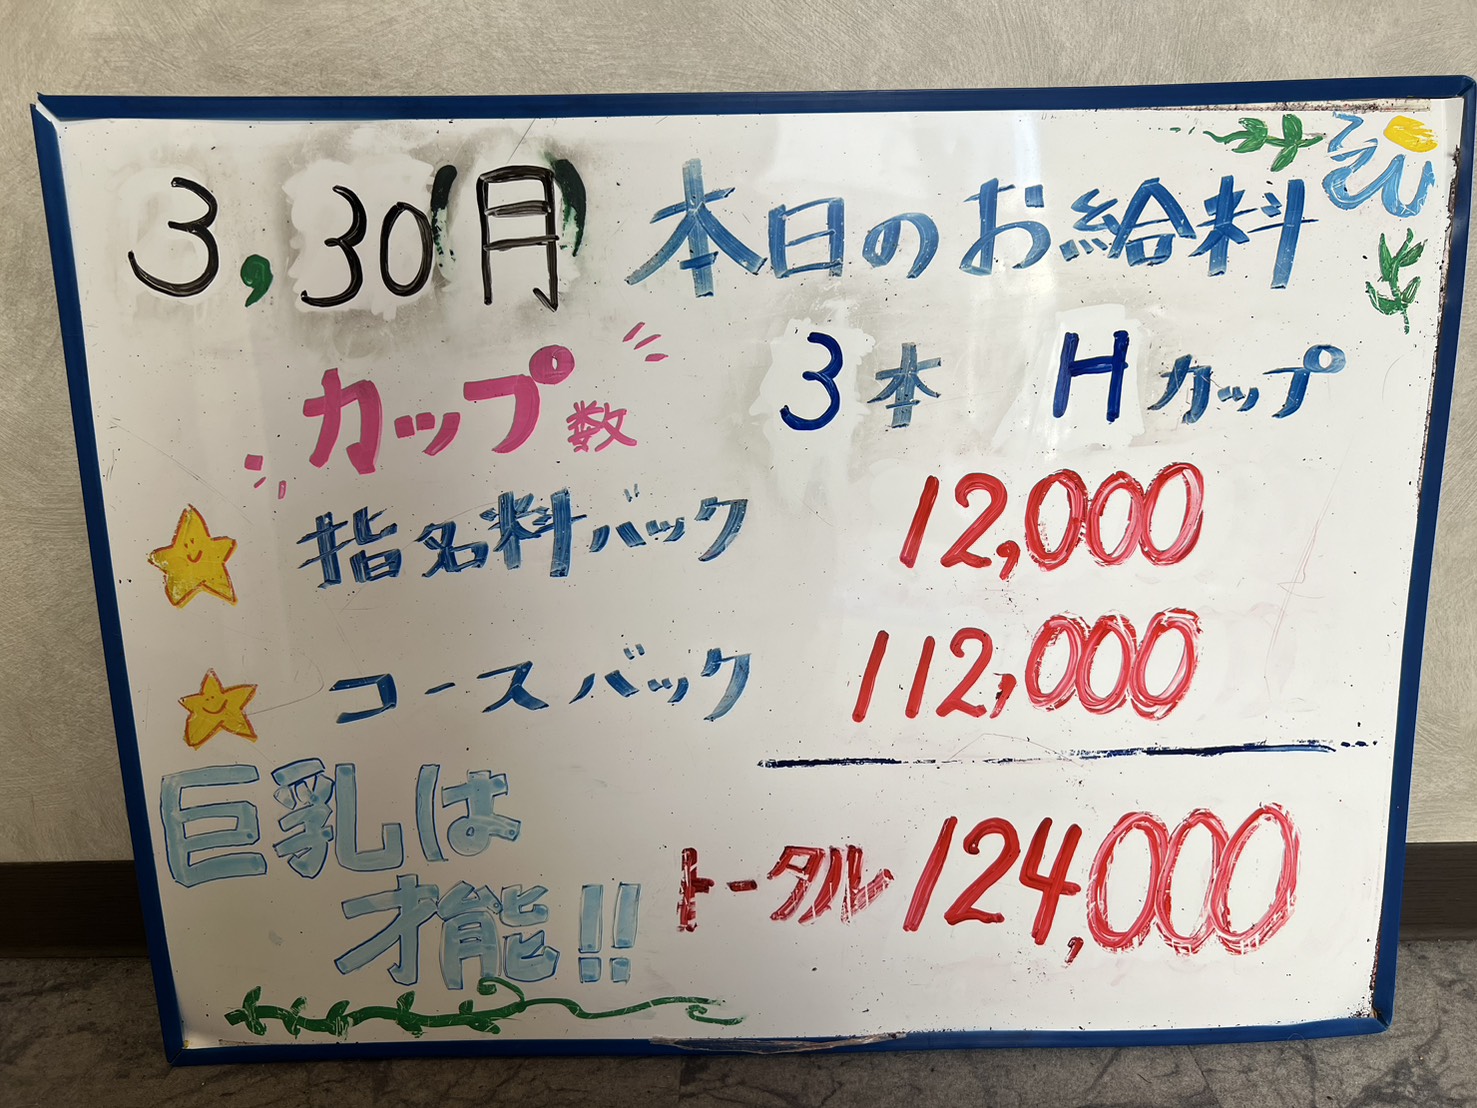 3,30(月) 本日のお給料
カップ数 3本 Hカップ
指名料バック 12,000
コースバック 112,000
巨乳は
才能!!
トータル 124,000